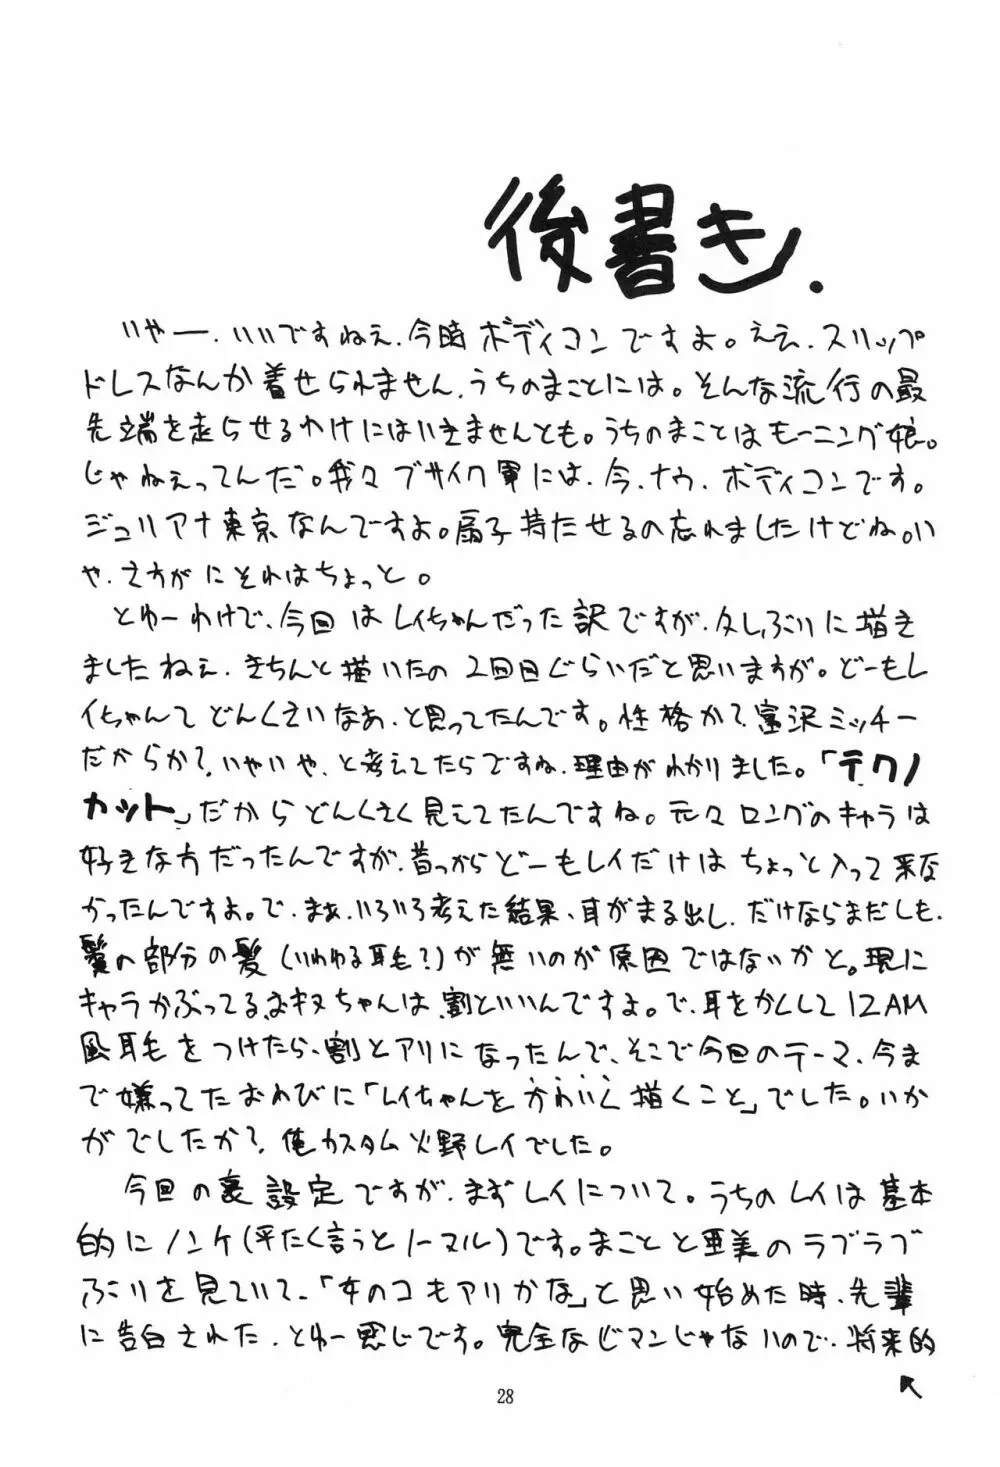 後書き.
いやー、いいですねえ、今時ボディコンですよ。ええ、スリップ
ドレスなんか着せられません、うちのまことには。そんな流行の最
先端を走らせるわけにはいきませんとも。うちのまことはモーニング娘。
じゃねえってんだ。我々ブサイク軍には、今、ナウ、ボディコンです。
ジュリアナ東京なんですよ。扇子持たせるの忘れましたけどね。い
や、さすがにそれはちょっと。
とゆーわけで、今回はレイちゃんだった訳ですが、久しぶりに描き
ましたねえ、きちんと描いたの2回目ぐらいだと思いますが。どーもレ
イちゃんてどんくさいなあ、と思ってたんです。性格か?富沢ミッチー
だからか?、いやいや、と考えてたらですね、理由がわかりました。「テクノ
カット」だからどんくさく見えてたんですね。元々ロングのキャラは
好きな方だったんですが、昔っからどーもレイだけはちょっと入って来な
かったんですよ。で、まあ、いろいろ考えた結果、耳がまる出し、だけならまだしも、
鬢の部分の髪(いわゆる耳毛?)が無いのが原因ではないかと。現に
キャラかぶってるおキヌちゃんは、割といいんですよ。で、耳をかくして12AM
風耳毛をつけたら、割とアリになったんで、そこで今回のテーマ、今ま
で嫌ってたおわびに「レイちゃんをかわいく描くこと」でした。いか
がでしたか?、俺カスタム火野レイでした。
今回の裏設定ですが、まずレイについて。うちのレイは基本
的にノンケ(平たく言うとノーマル)です。まことと亜美のラブラブ
ぶりを見ていて、「女のコもアリかな」と思い始めた時、先輩
に告白された、とゆー感じです。完全なビアンじゃないので、将来的
28